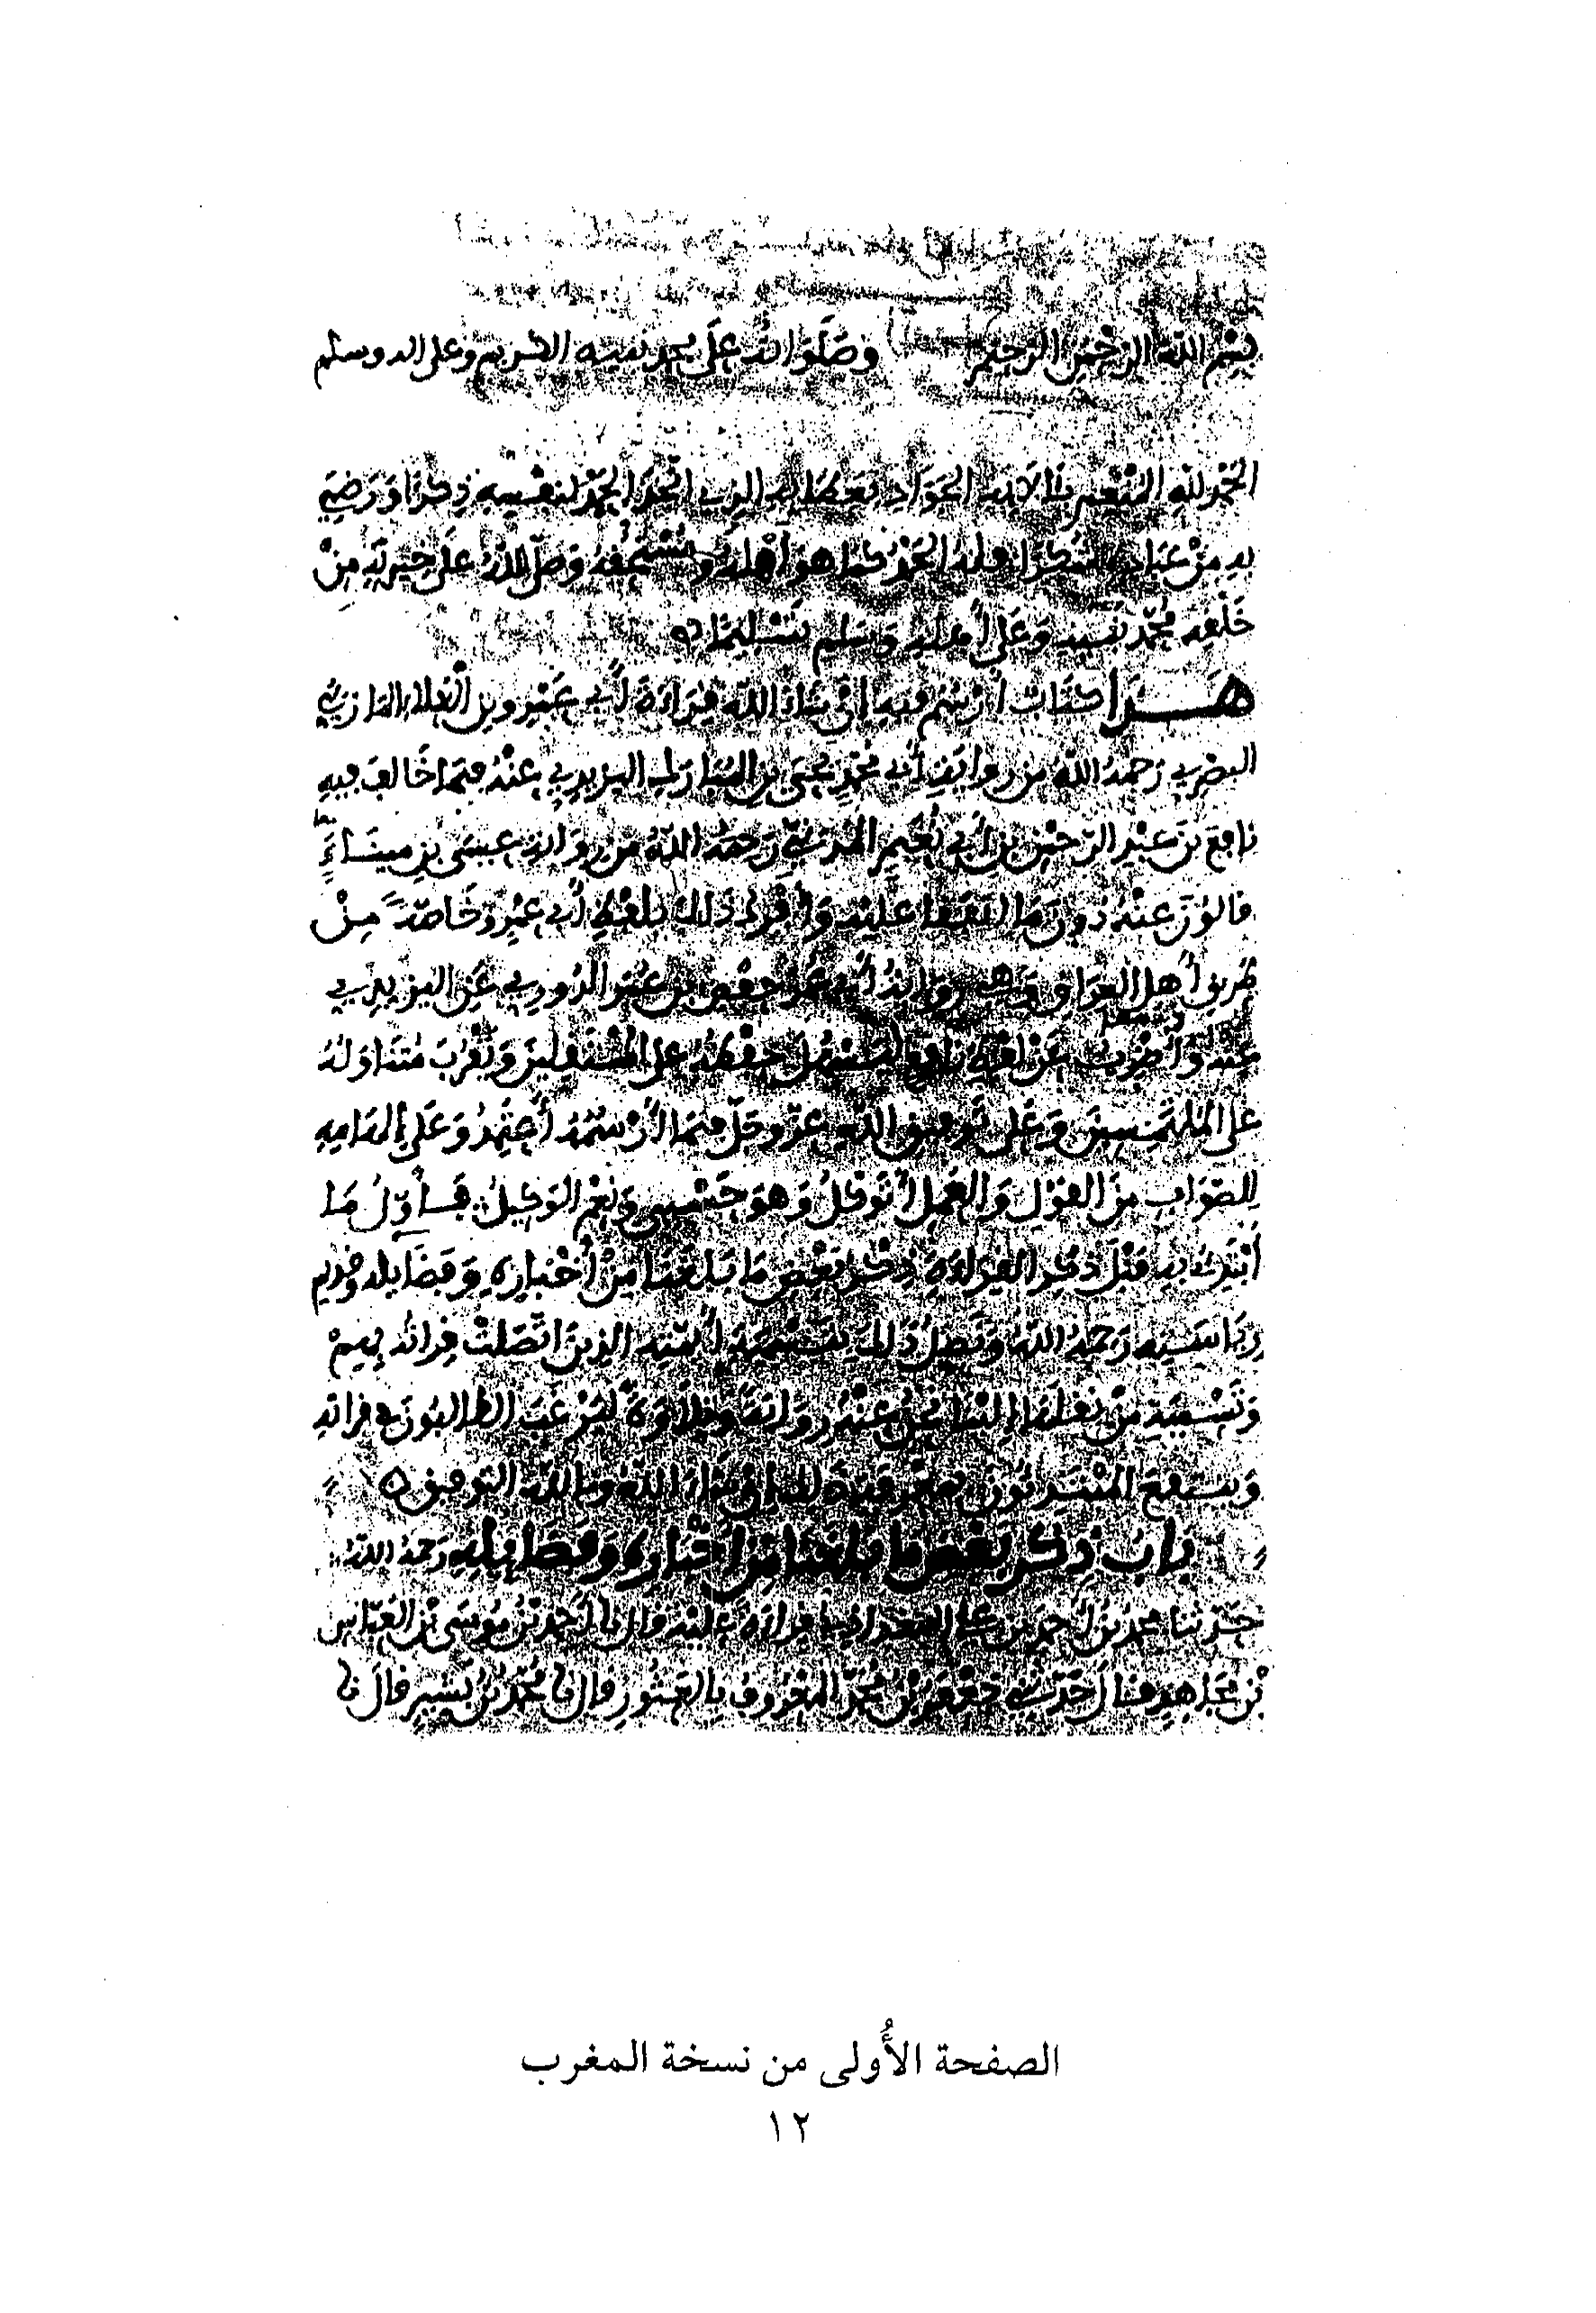 بسم الله الرحمن الرحيم وصلوات الله على محمد نبيه الكريم وعلى اله وسلم
الحمد لله المنعم بالايه الجواد بعطائه الذي اتخذ الحمد لنفسه ذكرا ورضي
به من عباده شكرا فله الحمد كما هو أهله ومستحقه وصلى الله على خيرته من
خلقه محمد نبيه وعلى أهله وسلم تسليما
هـذا كتاب أرسم فيه إن شاء الله قراءة أبي عمرو بن العلاء المازني
البصري رحمه الله من رواية أبي محمد يحيى بن المبارك اليزيدي عنه فيما خالف فيه
نافع بن عبد الرحمن بن أبي نعيم المدني رحمه الله من رواية عيسى بن ميناء
قالون عنه دون ما اتفقا عليه وأفرد ذلك بلفظ أبي عمرو خاصة من
طريق أهل العراق وهي رواية أبي عمر حفص بن عمر الدوري عن اليزيدي
عنه وأضرب عن لفظ نافع ليسهل حفظه على المتحفظين ويقرب متناوله
على الملتمسين وعلى توفيق الله عز وجل فيما أرسمه أعتمد وعلى إلهامه
للصواب من القول والعمل أتوكل وهو حسبي ونعم الوكيل فأول ما
أبتدئ به قبل ذكر القراءة ذكر بعض ما بلغنا من أخباره وفضايله وقديم
رياسته رحمه الله ونصل ذلك بتسمية أيمته الذين اتصلت قراته بهم
وتسمية من نقلها إلينا عنه رواية وتلاوة ليرغب الطالبون في قراته
وينتفع المبتدئون بمعرفة ذلك إن شاء الله وبالله التوفيق
باب ذكر بعض ما بلغنا من أخباره وفضايله رحمه الله
حدثنا محمد بن أحمد بن علي البغدادي قراءة عليه قال نا أحمد بن موسى بن العباس
بن مجاهد قال حدثني جعفر بن محمد المعروف بالعشور قال نا محمد بن بشير قال نا
الصفحة الأُولى من نسخة المغرب
١٢